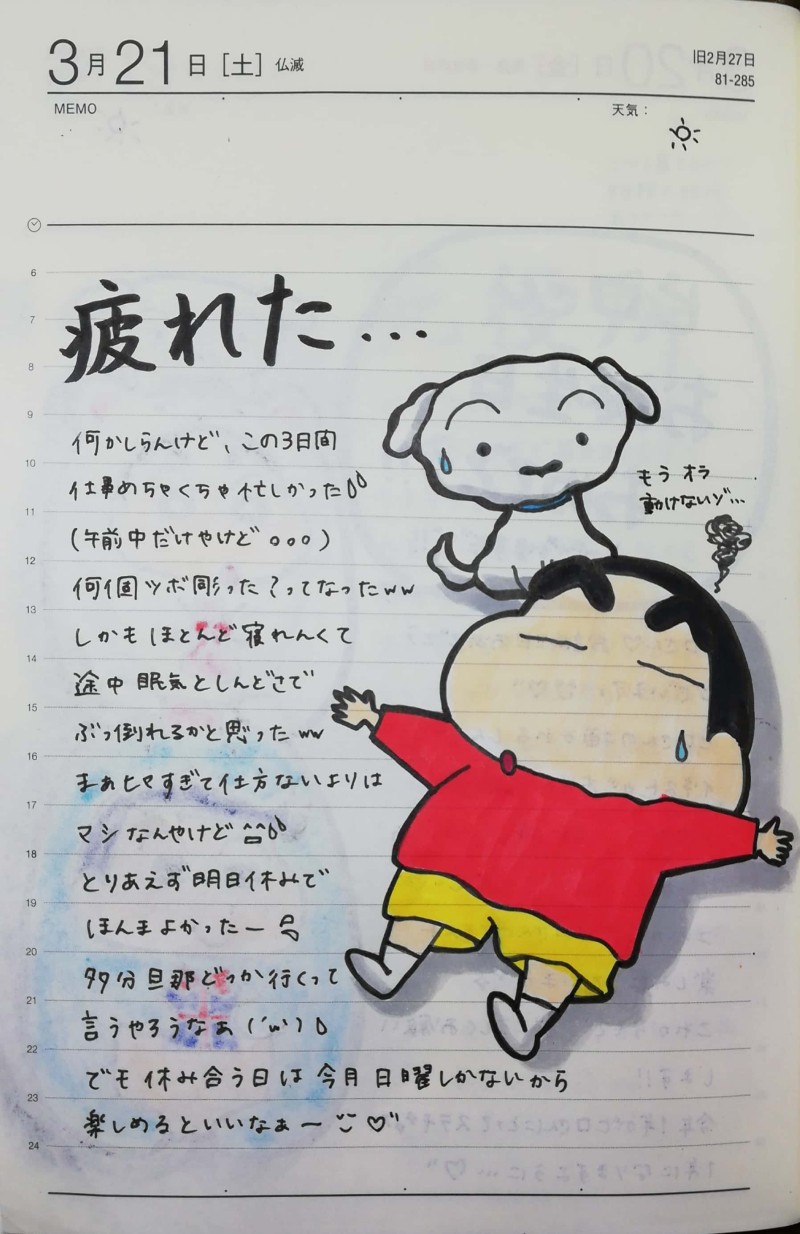 3月21日[土] 仏滅
旧2月27日
81-285
MEMO
天気：
6
7
8
9
10
11
12
13
14
15
16
17
18
19
20
21
22
23
24
疲れた...
何かしらんけど、この3日間
仕事めちゃくちゃ忙しかった
(午前中だけやけど。。。)
何個ツボ彫った?ってなったww
しかもほとんど寝れんくて
途中眠気としんどさで
ぶっ倒れるかと思ったww
まぁヒマすぎて仕方ないよりは
マシなんやけど^^
とりあえず明日休みで
ほんまよかったー
多分旦那どっか行くって
言うやろうなぁ(´ω`)
でも休み合う日は今月日曜しかないから
楽しめるといいなぁー♡"
もうオラ
動けないゾ...